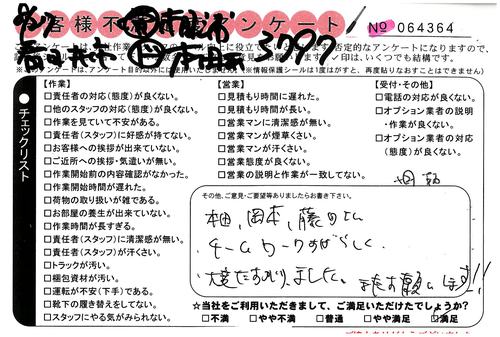 お客様不満足度アンケート
№ 064364
5797
※このアンケートは、アンケート目的以外には使用いたしません。※情報保護シールは1度がすと、再度貼りなおすことはできません
チェックリスト
【作業】
□責任者の対応(態度)が良くない。
□他のスタッフの対応(態度)が良くない。
□作業を見ていて不安がある。
□責任者(スタッフ)に好感が持てない。
□お客様への挨拶が出来ていない。
□ご近所への挨拶・気遣いが無い。
□作業開始前の内容確認がなかった。
□作業開始時間が遅れた。
□荷物の取り扱いが雑である。
□お部屋の養生が出来ていない。
□作業時間が長すぎる。
□責任者(スタッフ)に清潔感が無い。
□責任者(スタッフ)が汗くさい。
□トラックが汚い。
□梱包資材が汚い。
□運転が不安(下手)である。
□靴下の履き替えをしてない。
□スタッフにやる気がみられない。
【営業】
□見積もり時間に遅れた。
□見積もり時間が長い。
□営業マンに清潔感が無い。
□営業マンが煙草くさい。
□営業マンが汗くさい。
□営業態度が良くない。
□営業の説明と作業が一致してない。
【受付・その他】
□電話の対応が良くない。
□オプション業者の説明
・作業が良くない。
□オプション業者の対応
(態度)が良くない。
その他、ご意見・ご要望等ありましたらお書き下さい。
柚、岡本、藤田さん
チームワークがすばらしく、
大変たすかりました。
☆当社をご利用いただきまして、ご満足いただけたでしょうか?
□不満 □やや不満 □普通 □やや満足 □満足